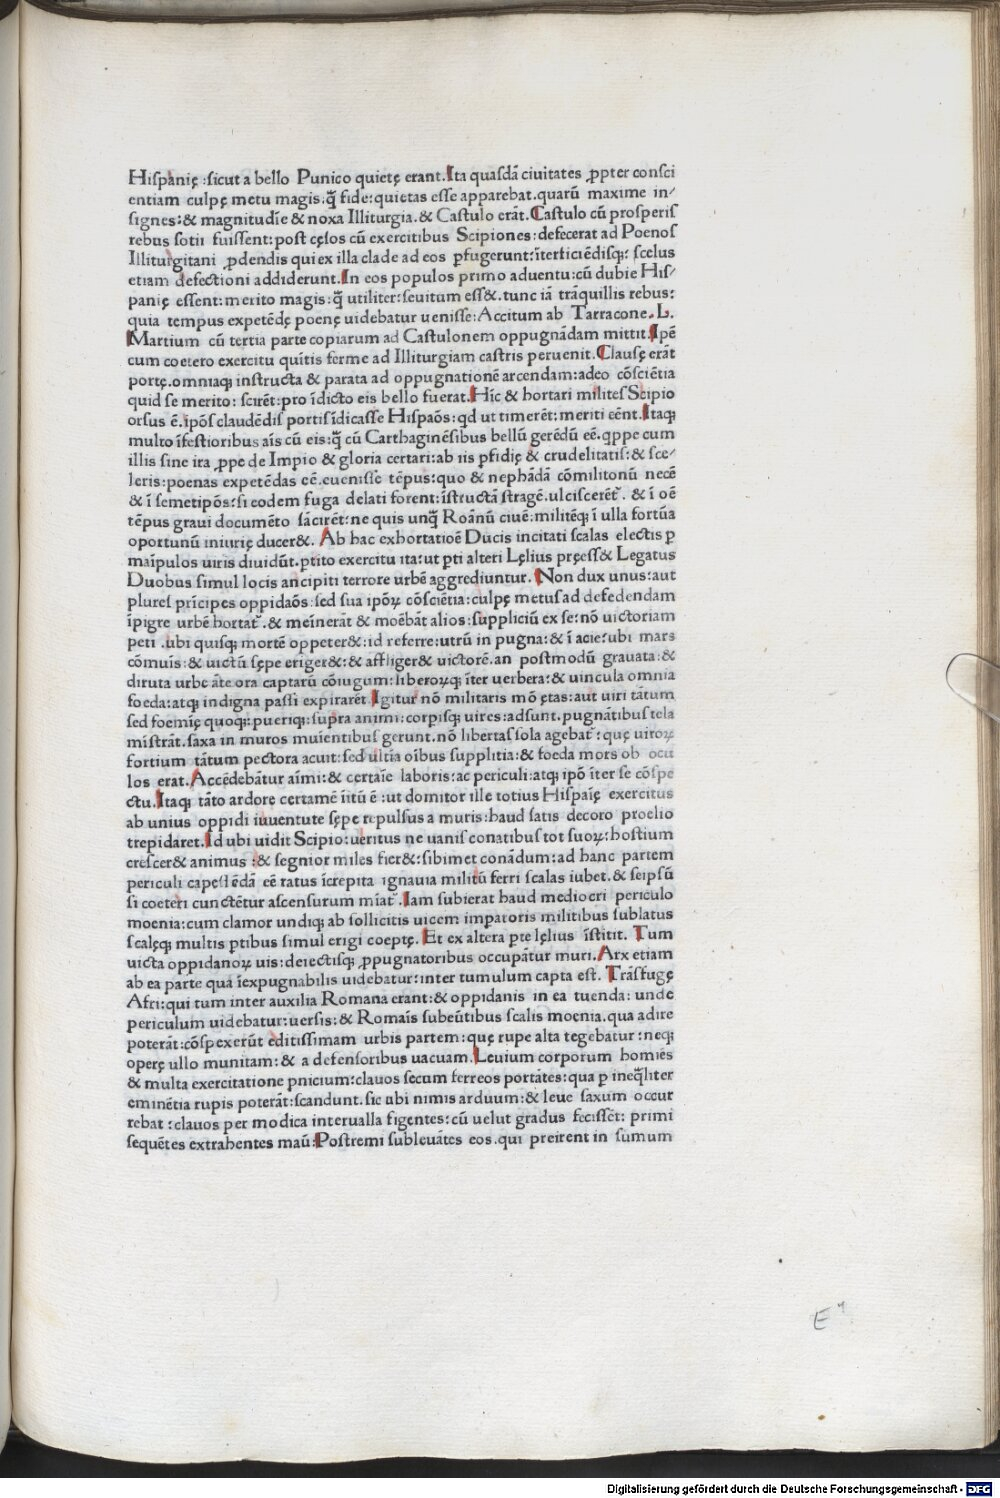 Hispanię :sicut a bello Punico quietę erant.Ita quasdã ciuitates ꝓpter consci
entiam culpę metu magis:q̃ fide:quietas esse apparebat.quarũ maxime in/
signes:& magnitudie & noxa Illiturgia.& Castulo erãt.Castulo cũ prosperis
rebus sotii fuissent:post cęsos cũ exercitibus Scipiones:defecerat ad Poenos
Illiturgitani ꝓdendis qui ex illa clade ad eos pfugerunt:ĩterficiẽdisq;: scelus
etiam defectioni addiderunt.In eos populos primo aduentu:cũ dubie His/
panię essent:merito magis:q̃ utiliter:seuitum ess&.tunc iã trãquillis rebus:
quia tempus expetẽdę poenę uidebatur uenisse:Accitum ab Tarracone.L.
Martium cũ tertia parte copiarum ad Castulonem oppugnãdam mittit.Ipẽ
cum coetero exercitu quĩtis ferme ad Illiturgiam castris peruenit.Clausę erãt
portę.omniaq; instructa & parata ad oppugnationẽ arcendam:adeo cõsciẽtia
quid se merito: scirẽt:pro ĩdicto eis bello fuerat.Hic & hortari milites Scipio
orsus ẽ.ipõs claudẽdis portis ĩdicasse Hispaõs:qd ut timerẽt:meriti eẽnt.Itaq;
multo ĩfestioribus aĩs cũ eis:q̃ cũ Carthaginẽsibus bellũ gerẽdũ eẽ.qppe cum
illis sine ira ꝓpe de Impio & gloria certari:ab iis pfidię & crudelitatis:& sce/
leris:poenas expetẽdas eẽ.euenisse tẽpus:quo & nephãdã cõmilitonũ necẽ
& ĩ semetipõs:si eodem fuga delati forent:ĩstructã fragẽ.ulciscerẽt̃. & ĩ oẽ
tẽpus graui documẽto sãcirẽt:ne quis unq̃ Roãnũ ciuẽ:militẽq; ĩ ulla fortũa
oportunũ iniurię ducer&. Ab hac exhortatioẽ Ducis incitati scalas electis p
maĩpulos uiris diuidũt.ptito exercitu ita:ut pti alteri Lęlius pręess& Legatus
Duobus simul locis ancipiti terrore urbẽ aggrediuntur. Non dux unus:aut
plures prĩcipes oppidaõs:sed sua ipõꝝ cõsciẽtia:culpę metus ad defedendam
ĩpigre urbẽ hortat̃.& meĩnerãt & moẽbãt alios:suppliciũ ex se:nõ uictoriam
peti .ubi quisq; mortẽ oppeter&:id referre:utrũ in pugna:& ĩ acie:ubi mars
cõmuĩs:& uictũ sępe eriger&:& affliger& uictorẽ.an postmodũ grauata:&
diruta urbe ãte ora captarũ cõiugum:liberoꝝq; ĩter uerbera:& uincula omnia
foeda:atq; indigna passi expirarẽt.Igitur nõ militaris mõ ętas:aut uiri tãtum
sed foemię quoq;:pueriq;:supra animi:corpisq; uires:adsunt.pugnãtibus tela
mĩstrãt.saxa in muros muĩentibus gerunt.nõ libertas sola agebat̃:quę uiroꝝ
fortium tãtum pectora acuit:sed ultĩa oĩbus supplitia:& foeda mors ob ocu
los erat.Accẽdebãtur aĩmi:& certaĩe laboris:ac periculi:atq; ipõ ĩter se cõspe
ctu.Itaq; tãto ardore certamẽ ĩitũ ẽ :ut domitor ille totius Hispaĩę exercitus
ab unius oppidi iuuentute sępe repulsus a muris:haud satis decoro proelio
trepidaret.Id ubi uidit Scipio:ueritus ne uanis conatibus tot suoꝝ:hostium
crescer& animus :& segnior miles fier&:sibimet conãdum:ad hanc partem
periculi capessẽdã eẽ ratus ĩcrepita ignauia militũ ferri scalas iubet.& seipsũ
si coeteri cunctẽtur ascensurum mĩat̃.Iam subierat haud mediocri periculo
moenia:cum clamor undiq; ab sollicitis uicem impatoris militibus sublatus
scalęq; multis ptibus simul erigi coeptę.Et ex altera pte lęlius ĩstitit. Tum
uicta oppidanoꝝ uis:deiectisq; ꝓpugnatoribus occupãtur muri.Arx etiam
ab ea parte qua ĩexpugnabilis uidebatur:inter tumulum capta est. Trãsfugę
Afri:qui tum inter auxilia Romana erant:& oppidanis in ea tuenda: unde
periculum uidebatur:uersis:& Romaĩs subeũtibus scalis moenia.qua adire
poterãt:cõspexerũt editissimam urbis partem:quę rupe alta tegebatur:neq;
operę ullo munitam:& a defensoribus uacuam.Leuium corporum homiẽs
& multa exercitatione pnicium:clauos secum ferreos portãtes:qua p ineq̃liter
eminẽtia rupis poterãt:scandunt.sic ubi nimis arduum:& leue saxum occur
rebat :clauos per modica interualla figentes:cũ uelut gradus fecissẽt: primi
sequẽtes extrahentes maũ:Postremi subleuãtes eos.qui preirent in sumum
E⁹
Digitalisierung gefördert durch die Deutsche Forschungsgemeinschaft - DFG